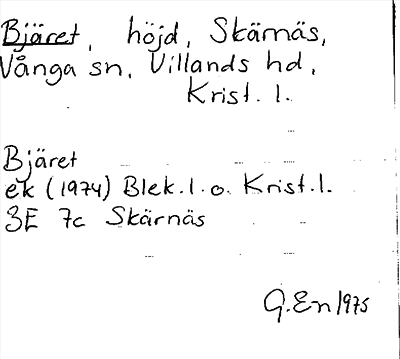 Bjäret, höjd, Skärnäs,
Vånga sn, Villands hd,
Krist. l.
Bjäret
ek (1974) Blek. l. o. Krist. l.
3E 7c Skärnäs
G. En 1975